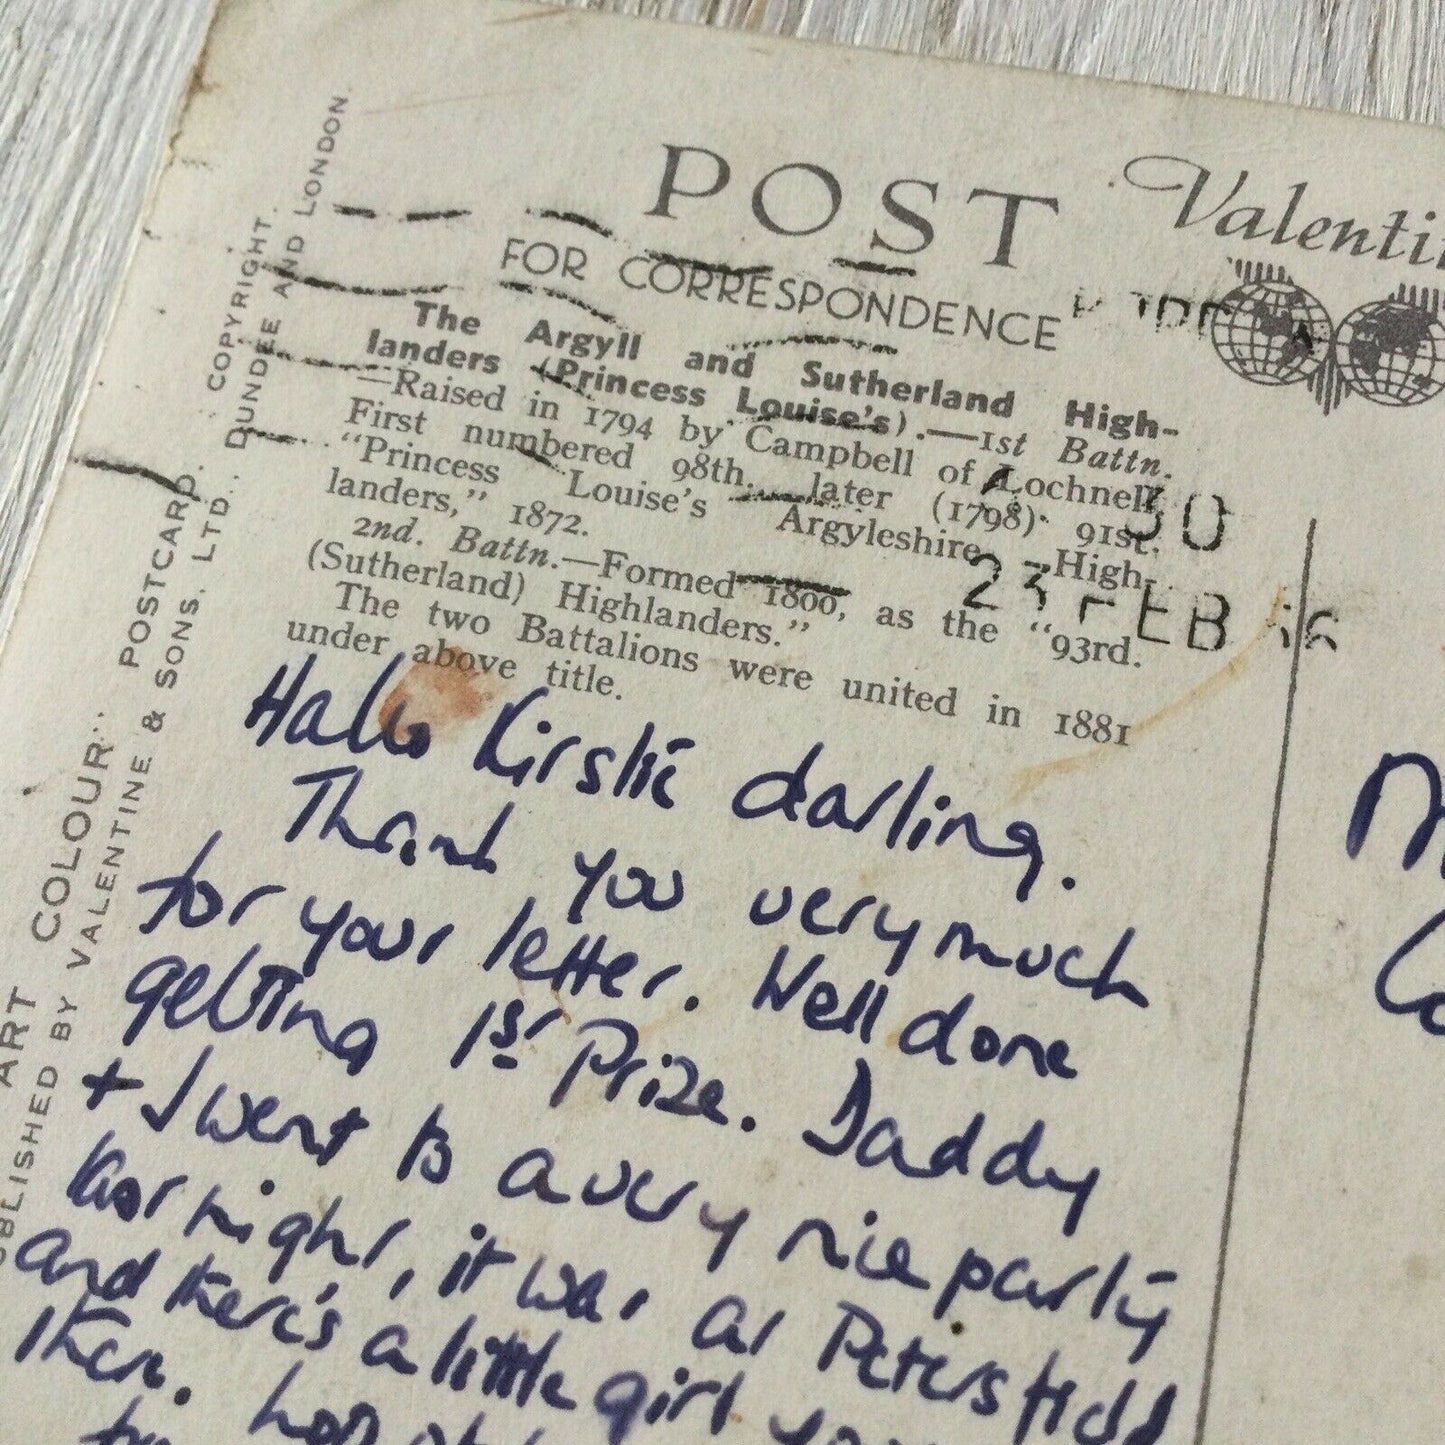 POST
Valenti
FOR CORRESPONDENCE
The Argyll and Sutherland High-
landers (Princess Louise's).—1st Battn.
—Raised in 1794 by Campbell of Lochnell,
First numbered 98th, later (1798) 91st.
"Princess Louise's Argyleshire High-
landers," 1872.
2nd. Battn.—Formed 1800, as the "93rd.
(Sutherland) Highlanders."
The two Battalions were united in 1881
under above title.
23 FEB
COPYRIGHT.
DUNDEE AND LONDON.
ART COLOUR" POSTCARD.
BLISHED BY VALENTINE & SONS. LTD.
Hallo Kirstie darling.
Thank you very much
for your letter. Well done
getting 1st Prize. Daddy
+ I went to a very nice party
last night, it was at Petersfield
and there's a little girl
there.